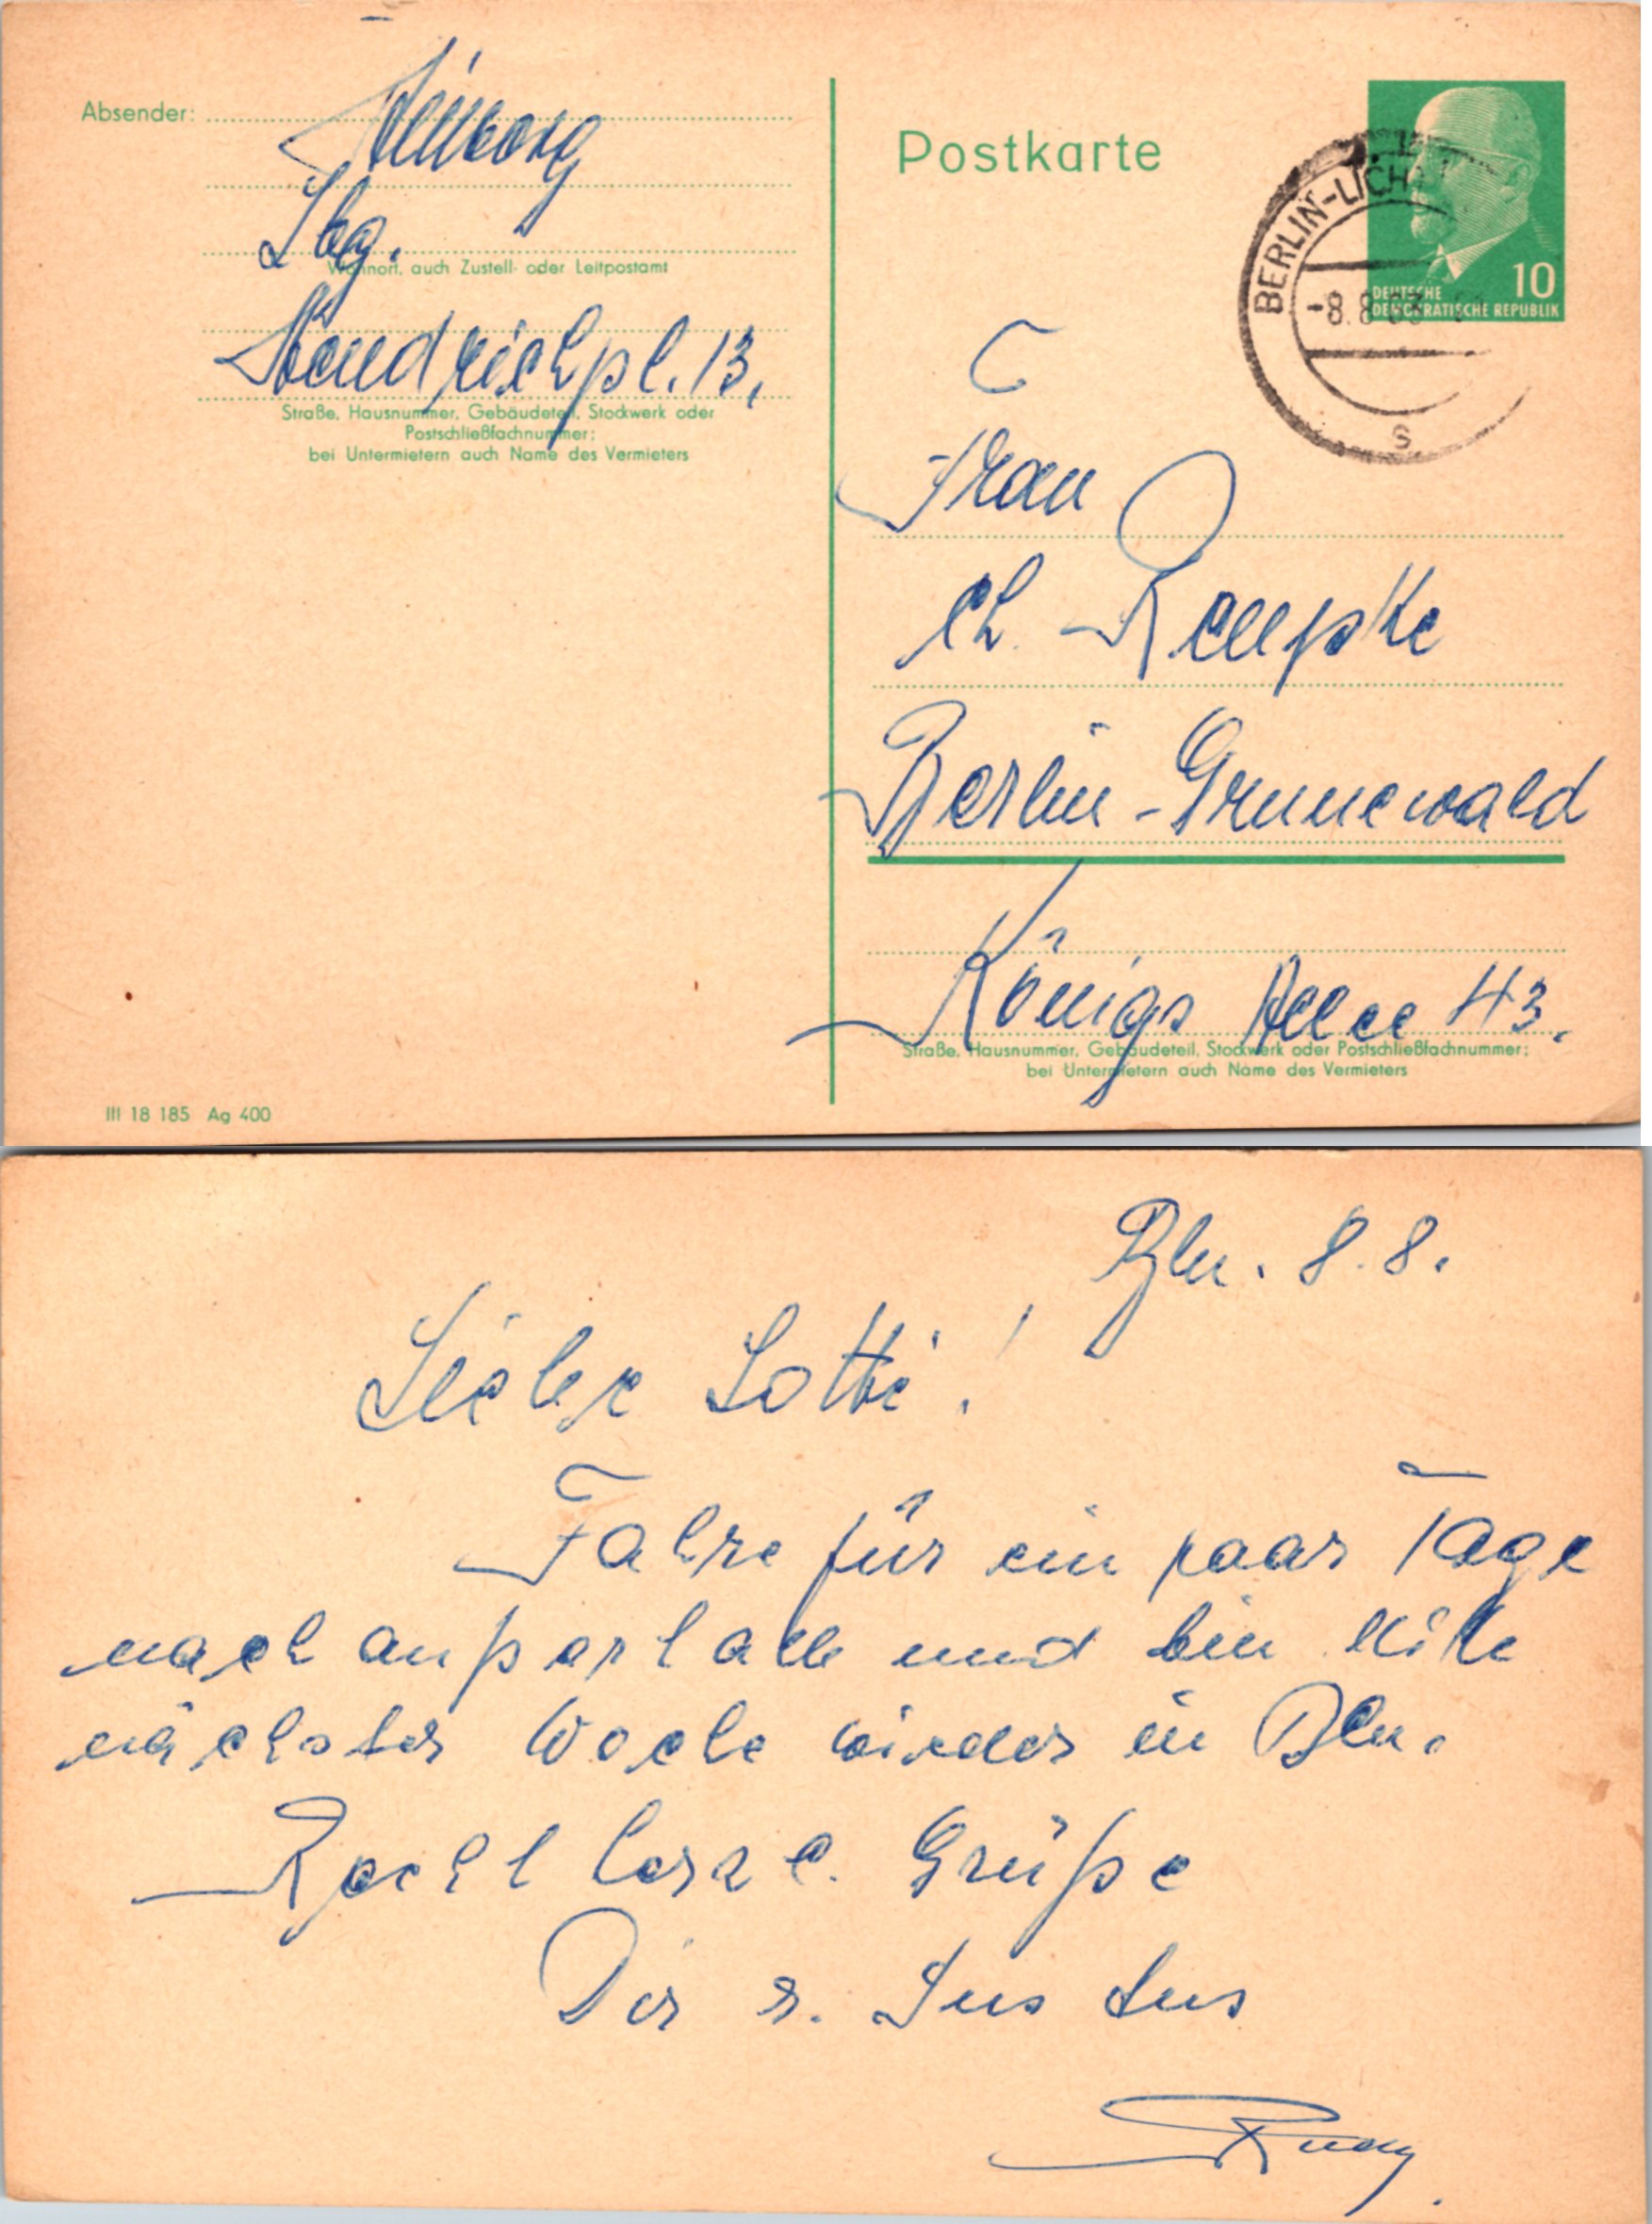 Absender:
Lbg.
Wohnort, auch Zustell- oder Leitpostamt
pl. 13,
Straße, Hausnummer, Gebäudeteil, Stockwerk oder
Postschließfachnummer;
bei Untermietern auch Name des Vermieters
III 18 185 Ag 400
Postkarte
BERLIN-LICH
-8.8.63
S
10
DEUTSCHE
DEMOKRATISCHE REPUBLIK
Frau
Ch. Rempke
Berlin-Grunewald
Königs Allee 43.
Straße, Hausnummer, Gebäudeteil, Stockwerk oder Postschließfachnummer;
bei Untermietern auch Name des Vermieters
Bln. 8.8.
Liebe Lotti!
Fahre für ein paar Tage
nach außerhalb und bin Mitte
nächster Woche wieder in Bln.
Recht herzl. Grüße
Dir u. Justus
Rudy.